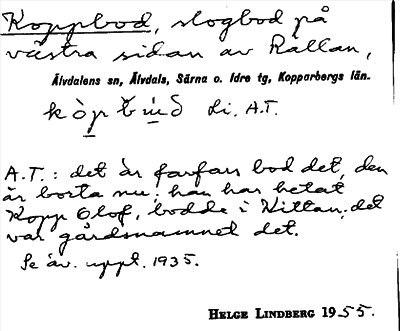 Koppbod, slogbod på
västra sidan av Rällan,
Älvdalens sn, Älvdals, Särna o. Idre tg, Kopparbergs län.
Li. A.T.
A.T.: det är farfars bod det, den
är borta nu: han har hetat
Kopp Olof, bodde i Kittan, det
var gårdsnamnet det.
Se äv. uppt. 1935.
HELGE LINDBERG 1955.